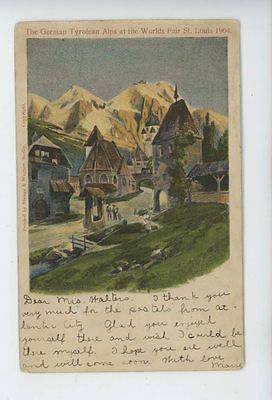 The German Tyrolean Alps at the Worlds Fair St. Louis 1904.
Printed by Stengy & Wagner, Berlin. Copyright.
Dear Mrs. Walters. I thank you
very much for the postals from at-
lantic City. Glad you enjoyed
yourself there and wish I could be
there myself. I hope you are well
and will come soon With love
Marie